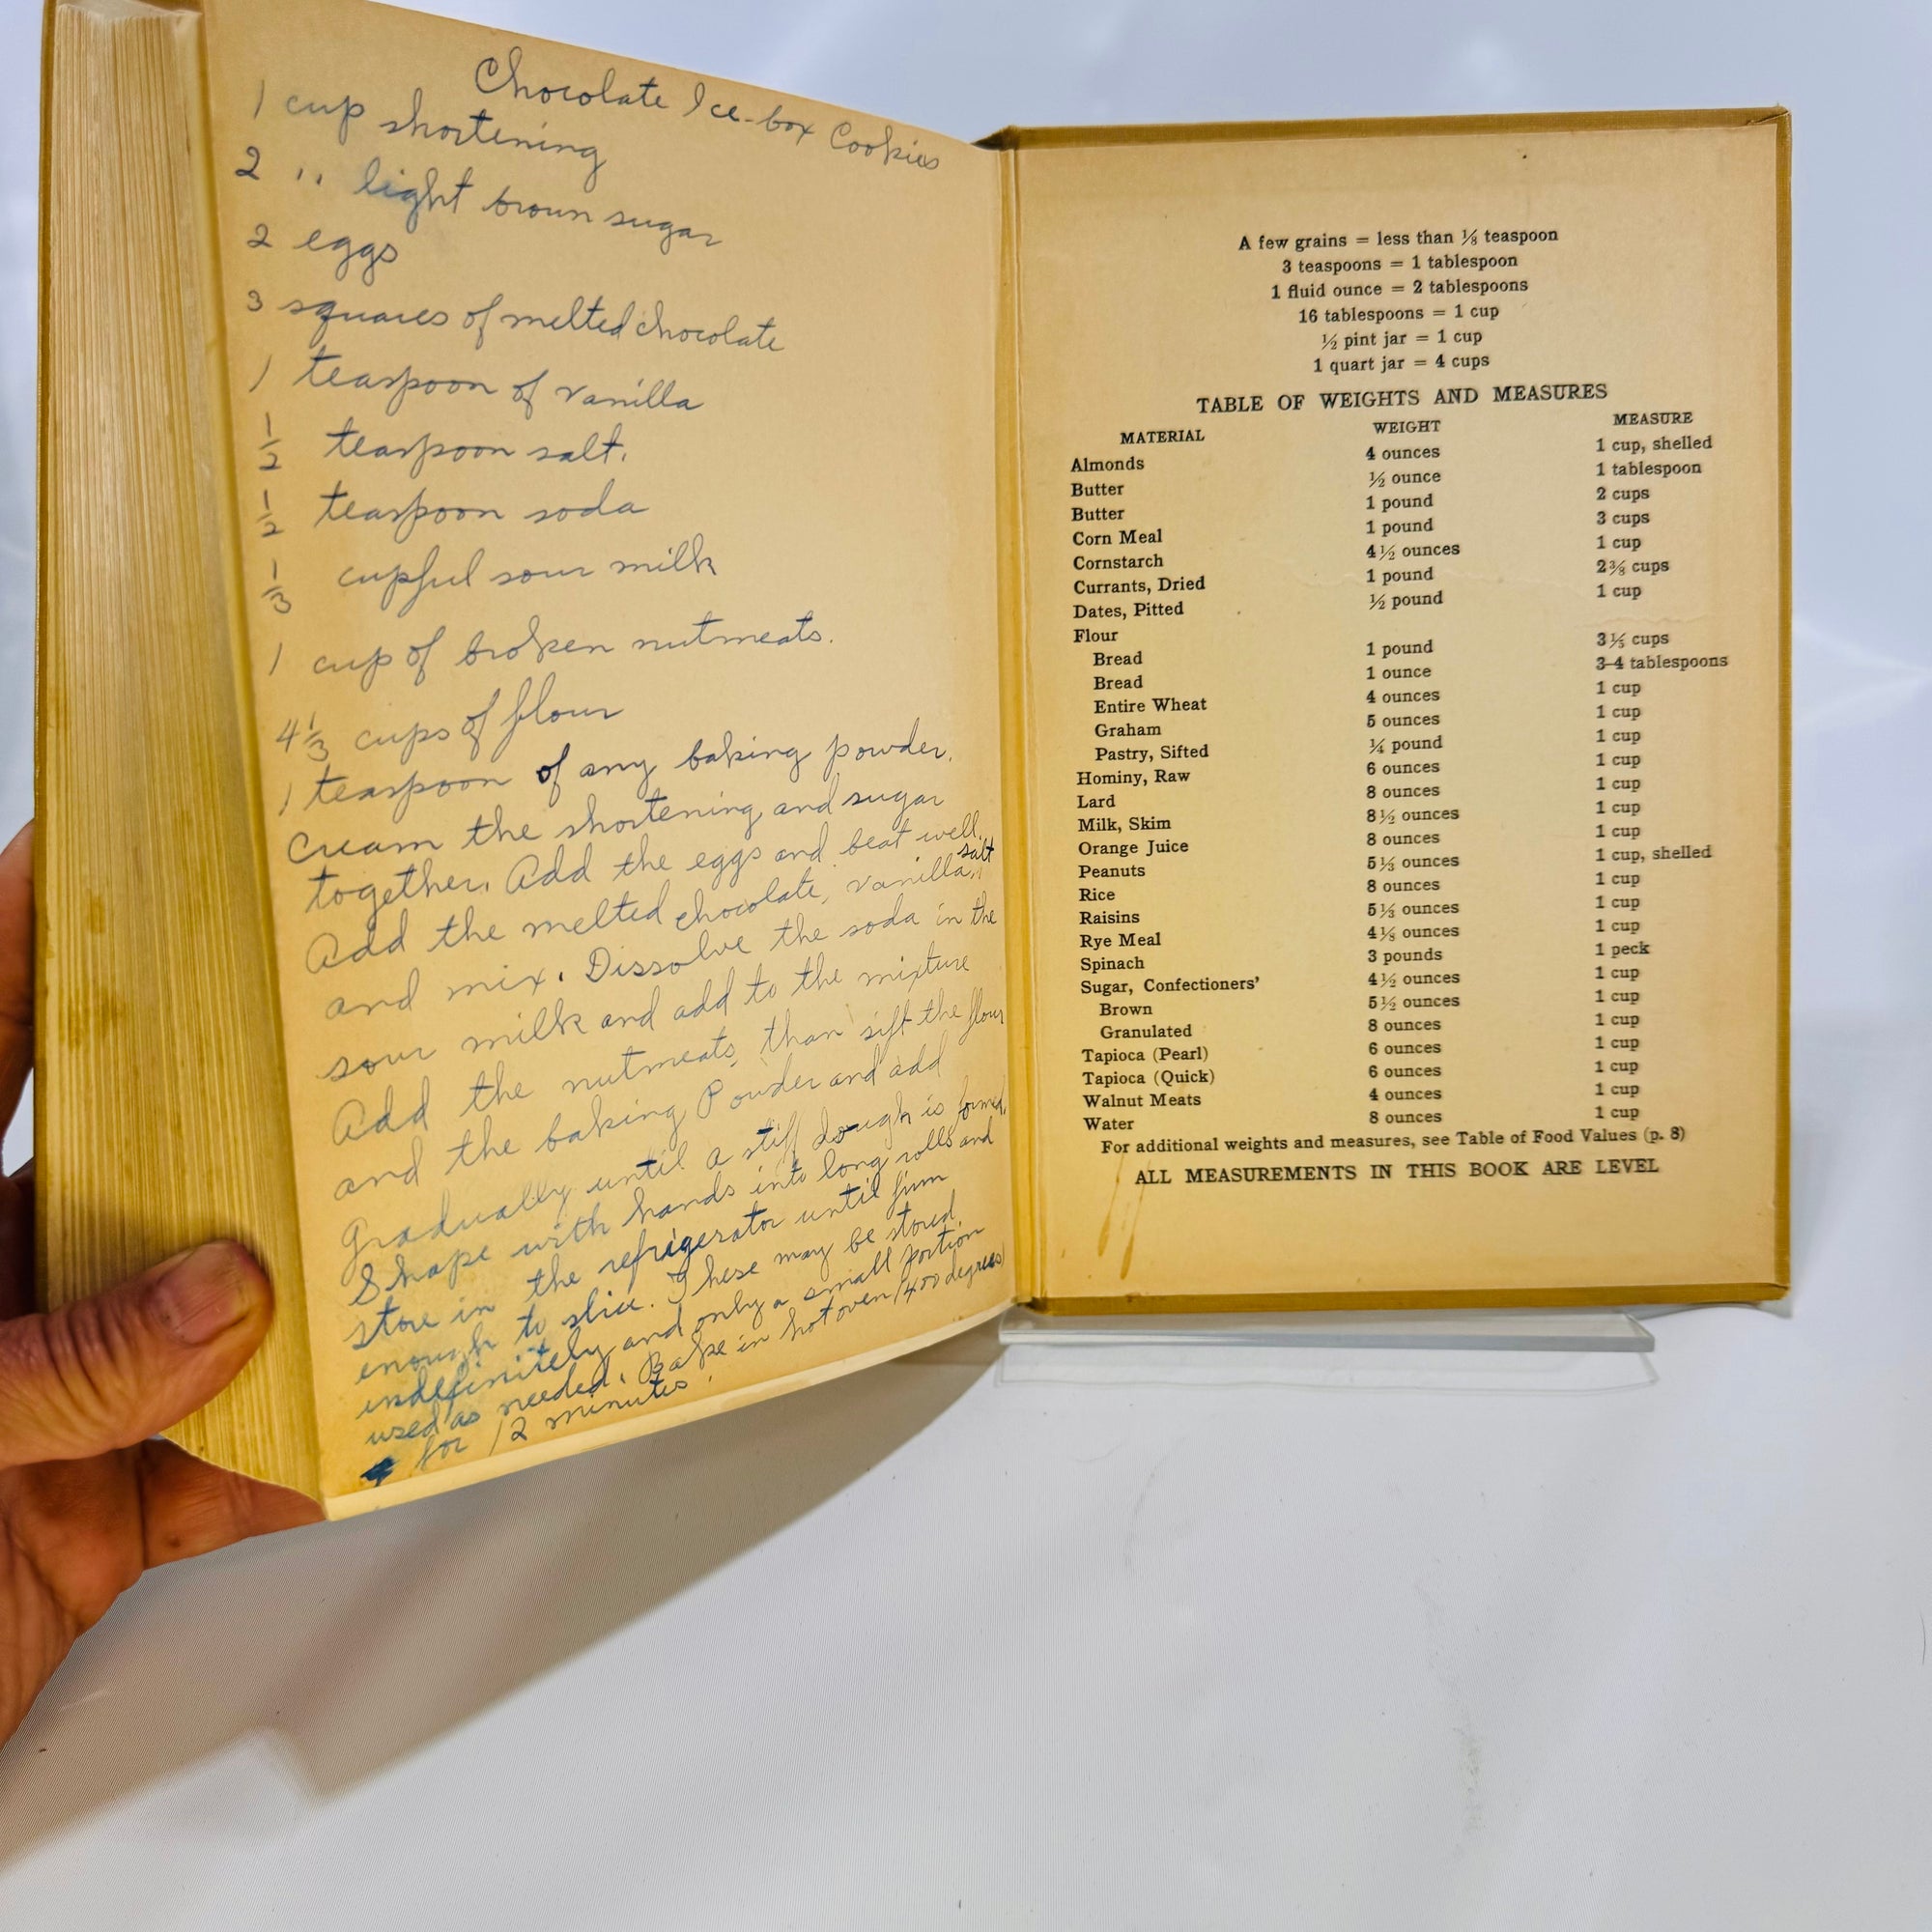 Chocolate Ice-box Cookies
1 cup shortening
2 ,, light brown sugar
2 eggs
3 squares of melted chocolate
1 teaspoon of vanilla
1/2 teaspoon salt.
1/2 teaspoon soda
1/3 cupful sour milk
1 cup of broken nutmeats.
4 1/3 cups of flour
1 teaspoon of any baking powder.
Cream the shortening and sugar
together. Add the eggs and beat well.
Add the melted chocolate, vanilla, salt
and mix. Dissolve the soda in the
sour milk and add to the mixture
Add the nutmeats, than sift the flour
and the baking Powder and add
Gradually until a stiff dough is formed.
Shape with hands into long rolls and
store in the refrigerator until firm
enough to slice. These may be stored
indefinitely and only a small portion
used as needed. Bake in hot oven (400 degrees)
for 12 minutes.
A few grains = less than ⅛ teaspoon
3 teaspoons = 1 tablespoon
1 fluid ounce = 2 tablespoons
16 tablespoons = 1 cup
½ pint jar = 1 cup
1 quart jar = 4 cups
TABLE OF WEIGHTS AND MEASURES
MATERIAL WEIGHT MEASURE
Almonds 4 ounces 1 cup, shelled
Butter ½ ounce 1 tablespoon
Butter 1 pound 2 cups
Corn Meal 1 pound 3 cups
Cornstarch 4½ ounces 1 cup
Currants, Dried 1 pound 2⅜ cups
Dates, Pitted ½ pound 1 cup
Flour
Bread 1 pound 3⅕ cups
Bread 1 ounce 3-4 tablespoons
Entire Wheat 4 ounces 1 cup
Graham 5 ounces 1 cup
Pastry, Sifted ¼ pound 1 cup
Hominy, Raw 6 ounces 1 cup
Lard 8 ounces 1 cup
Milk, Skim 8½ ounces 1 cup
Orange Juice 8 ounces 1 cup
Peanuts 5⅓ ounces 1 cup, shelled
Rice 8 ounces 1 cup
Raisins 5⅓ ounces 1 cup
Rye Meal 4⅕ ounces 1 cup
Spinach 3 pounds 1 peck
Sugar, Confectioners' 4½ ounces 1 cup
Brown 5½ ounces 1 cup
Granulated 8 ounces 1 cup
Tapioca (Pearl) 6 ounces 1 cup
Tapioca (Quick) 6 ounces 1 cup
Walnut Meats 4 ounces 1 cup
Water 8 ounces 1 cup
For additional weights and measures, see Table of Food Values (p. 8)
ALL MEASUREMENTS IN THIS BOOK ARE LEVEL